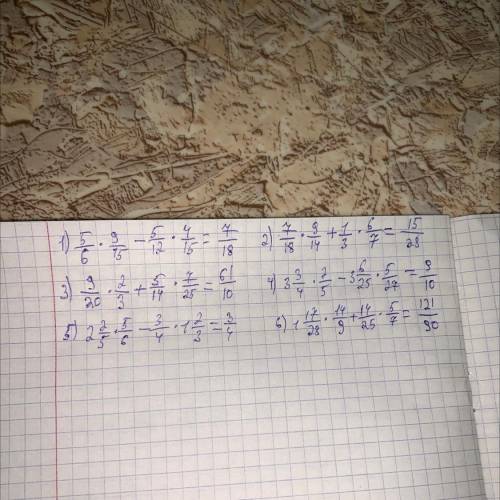 1) 5/6 · 9/15 - 5/12 · 4/15 = 7/18 2) 7/18 · 9/14 + 1/3 · 6/7 = 15/28
3) 9/20 · 2/3 + 5/14 · 7/25 = 61/10 4) 3 3/4 · 2/5 - 3 6/25 · 5/27 = 9/10
5) 2 2/5 · 5/6 - 3/4 · 1 2/3 = 3/4 6) 1 17/28 · 14/9 + 14/25 · 5/7 = 121/90